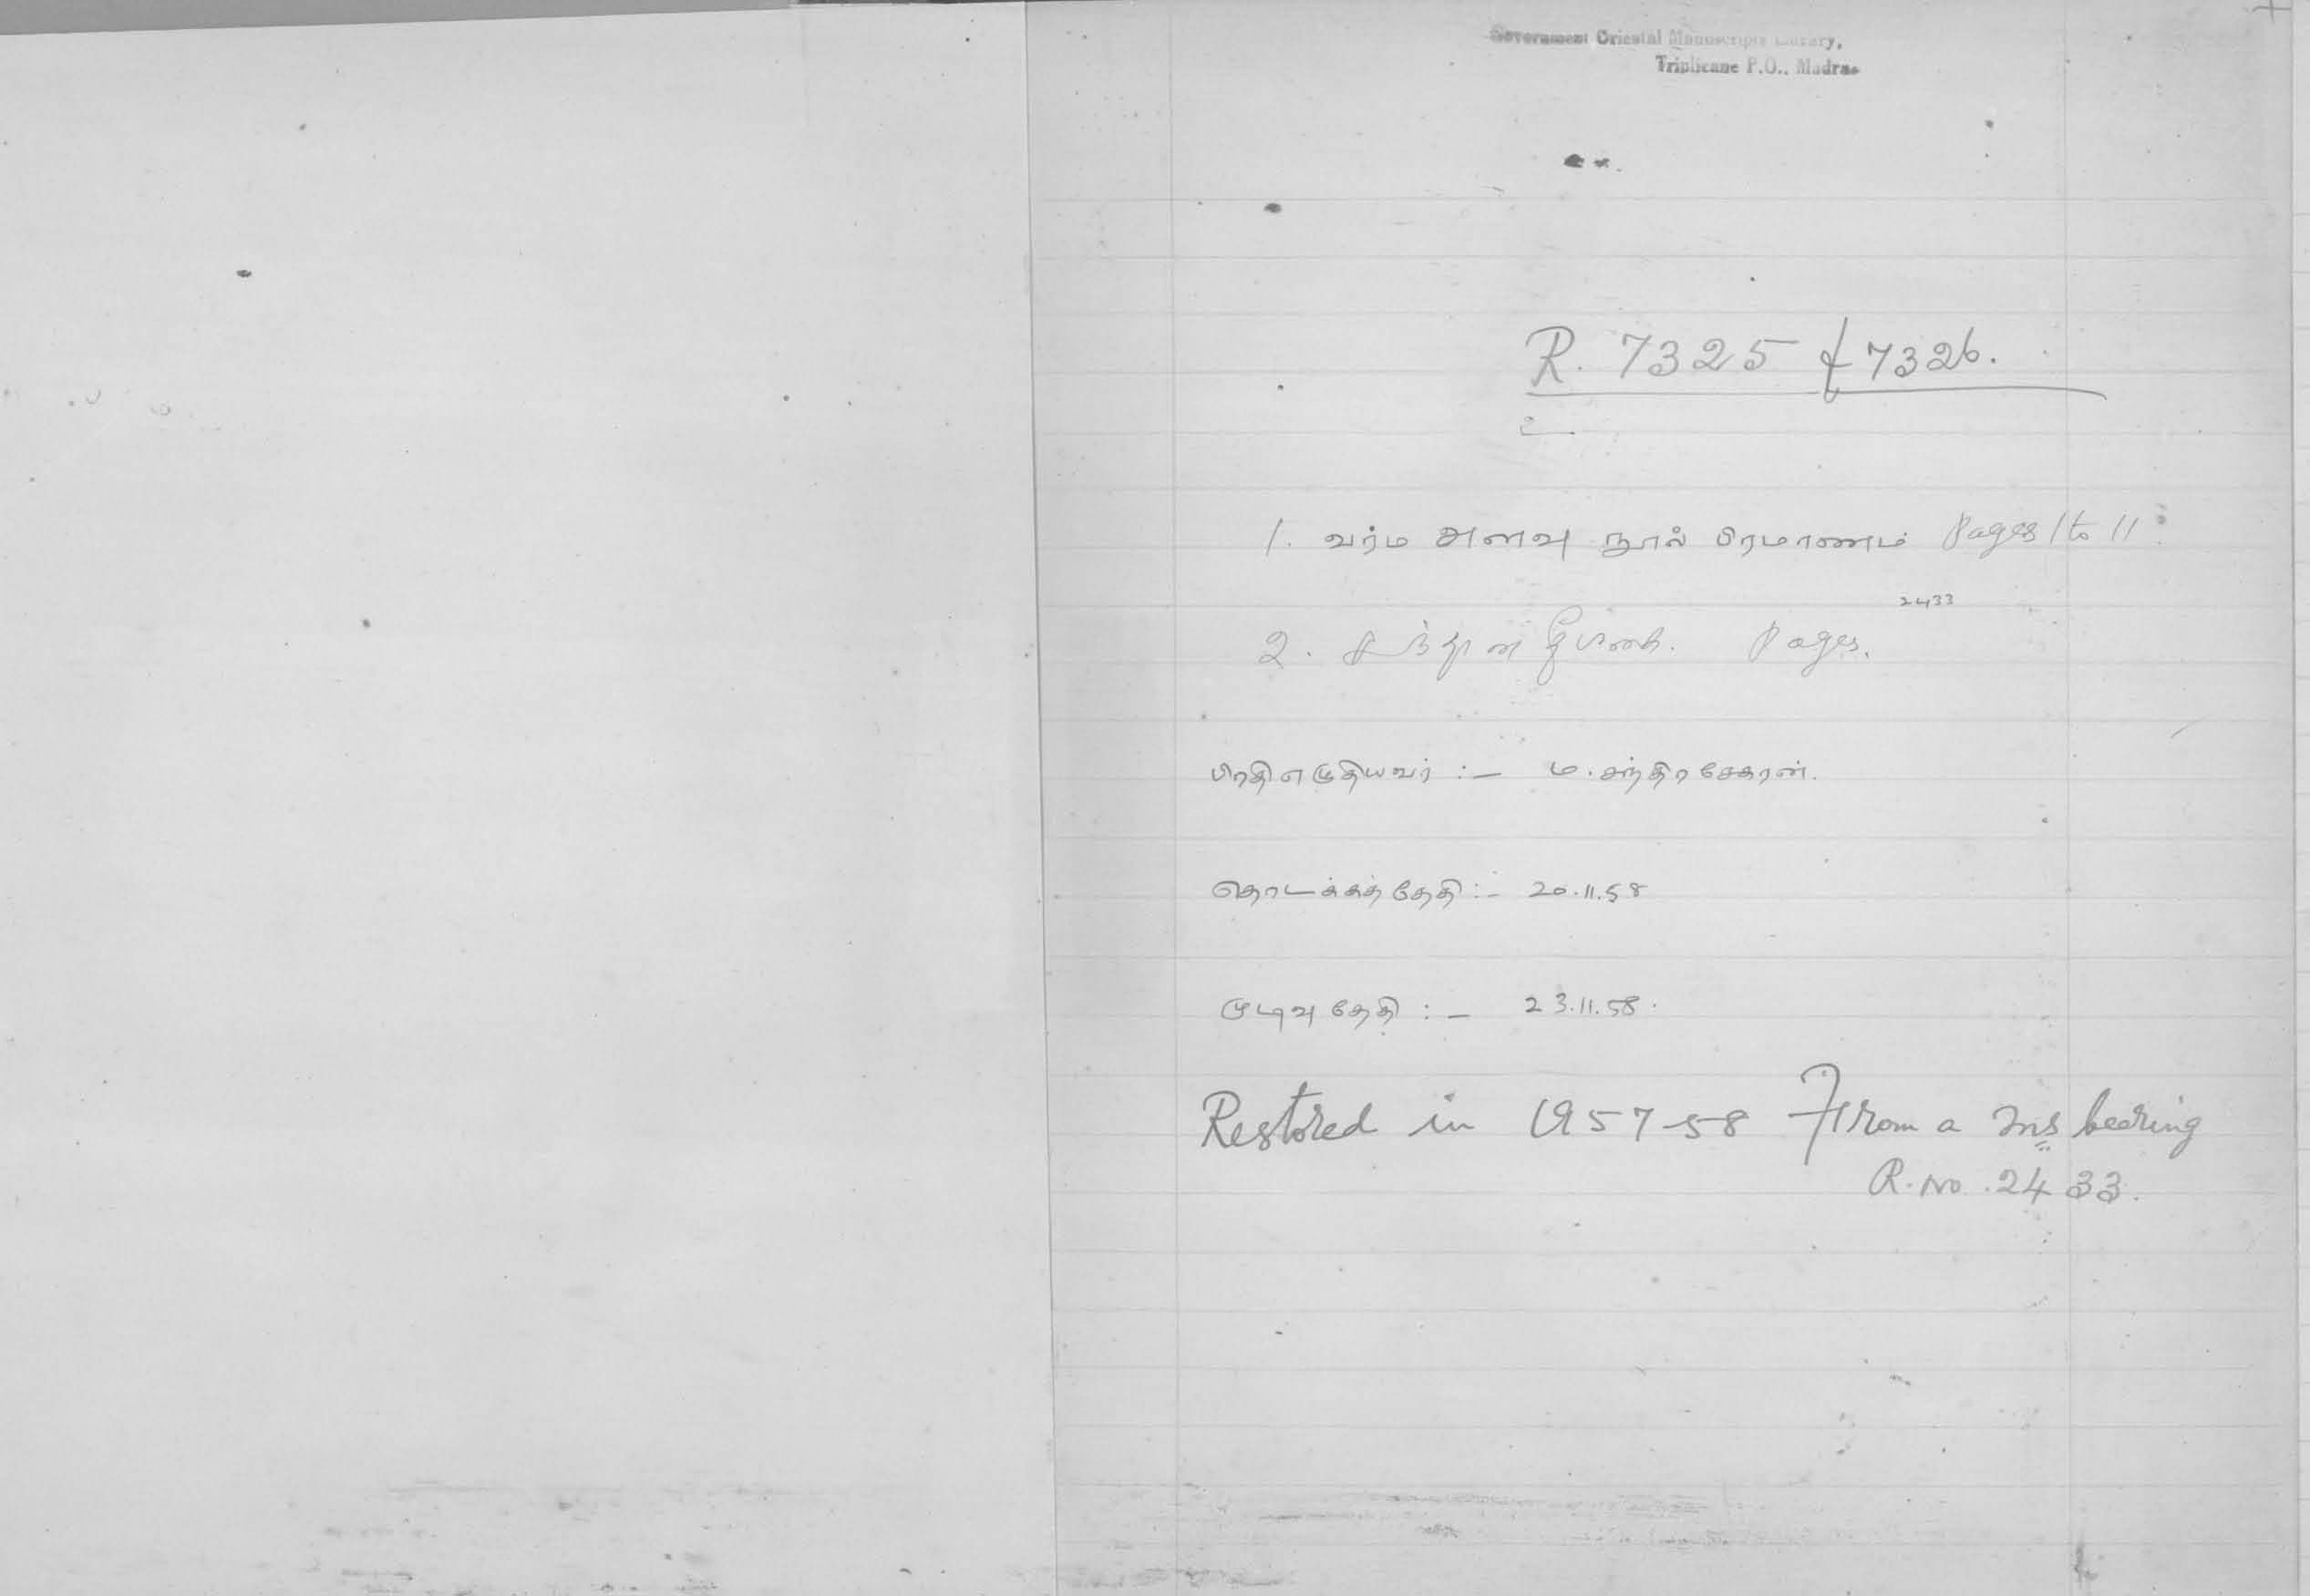 Government Oriental Manuscripts Library,
Triplicane P.O., Madras
R. 7325 & 7326.
உ
1. வர்ம அளவு நூல் பிரமாணம் Pages 1 to 11
2433
2. Pages.
பிரதி எழுதியவர் :- ம. சந்திரசேகரன்.
தொடக்கத் தேதி :- 20.11.58
முடிவு தேதி :- 23.11.58.
Restored in 1957-58 From a Ms bearing
R. No. 2433.